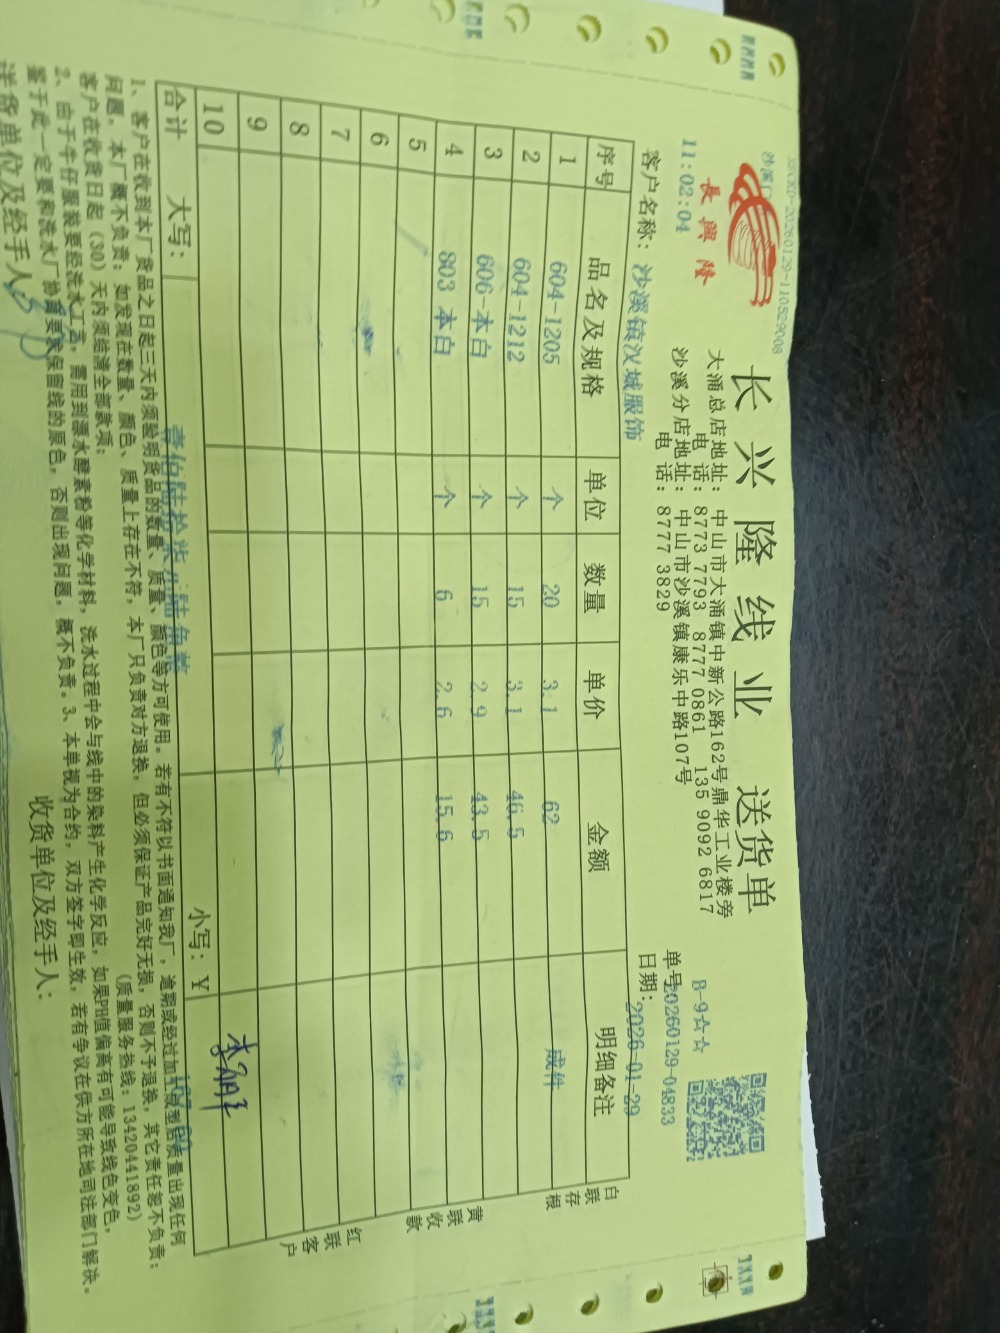 長興隆
沙溪
11:02:04
长兴隆线业 送货单
大涌总店地址：中山市大涌镇中新公路162号鼎华工业楼旁
电 话：8773 7793 8777 0861 135 9092 6817
沙溪分店地址：中山市沙溪镇康乐中路107号
电 话：8777 3829
B-9☆☆
单号20260129-04833
客户名称：沙溪镇汉城服饰
日期：2026-01-29
序号 品名及规格 单位 数量 单价 金额 明细备注
1 604-1205 个 20 3.1 62 成件
2 604-1212 个 15 3.1 46.5
3 606-本白 个 15 2.9 43.5
4 803 本白 个 6 2.6 15.6
5
6
7
8
9
10
合计 大写： 小写：¥
白联存根
黄联收款
红联客户
1、客户在收到本厂货品之日起三天内须验明货品的数量、质量、颜色等方可使用。若有不符以书面通知我厂，逾期或经过加工成型后质量出现任何
问题，本厂概不负责；如发现在数量、颜色、质量上存在不符，本厂只负责对方退换，但必须保证产品完好无损，否则不予退换，其它责任恕不负责；
客户在收货日起（30）天内须结清全部款项； (质量服务热线：13420441892)
2、由于牛仔服装要经洗水工序，需用到漂水酵素粉等化学材料，洗水过程中会与线中的染料产生化学反应，如果PH值偏高有可能导致线色变色，
鉴于此一定要和洗水厂协商要求保留线的原色，否则出现问题，概不负责。3、本单视为合约，双方签字即生效，若有争议在供方所在地司法部门解决。
送货单位及经手人： 收货单位及经手人：